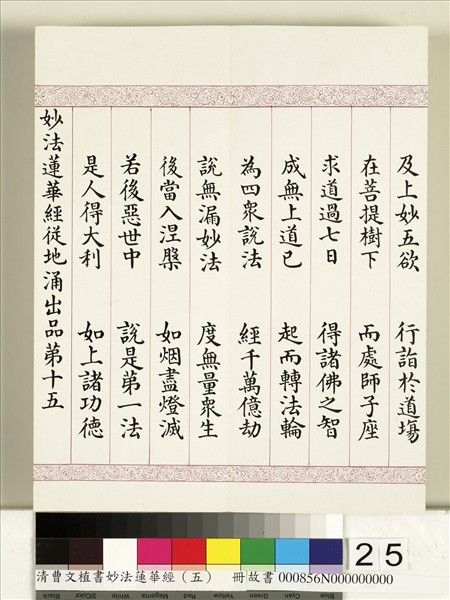 及上妙五欲 行詣於道場
在菩提樹下 而處師子座
求道過七日 得諸佛之智
成無上道已 起而轉法輪
為四衆說法 經千萬億劫
說無漏妙法 度無量衆生
後當入涅槃 如烟盡燈滅
若後惡世中 說是第一法
是人得大利 如上諸功德
妙法蓮華經從地涌出品第十五
25
清曹文植書妙法蓮華經（五） 冊故書 000856N000000000
Black 3/Color White Magenta Red Yellow Green Cyan Blue